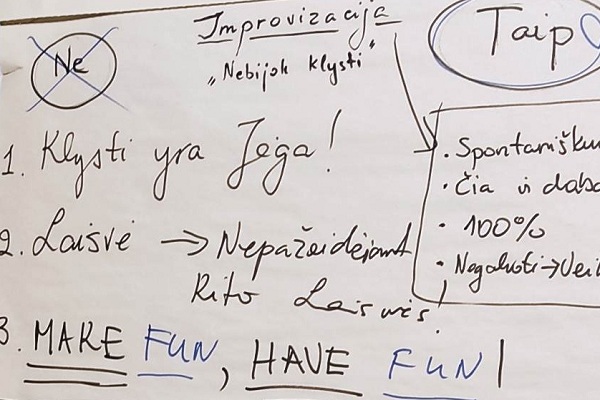 Improvizacija
Ne
Taip
„Nebijok klysti"
1. Klysti yra Jėga!
2. Laisvė → Nepažeidėjant
Kito Laisvės!
3. MAKE FUN, HAVE FUN!
• Spontanišku
• Čia ir daba
• 100%
• Negalvoti → Vei